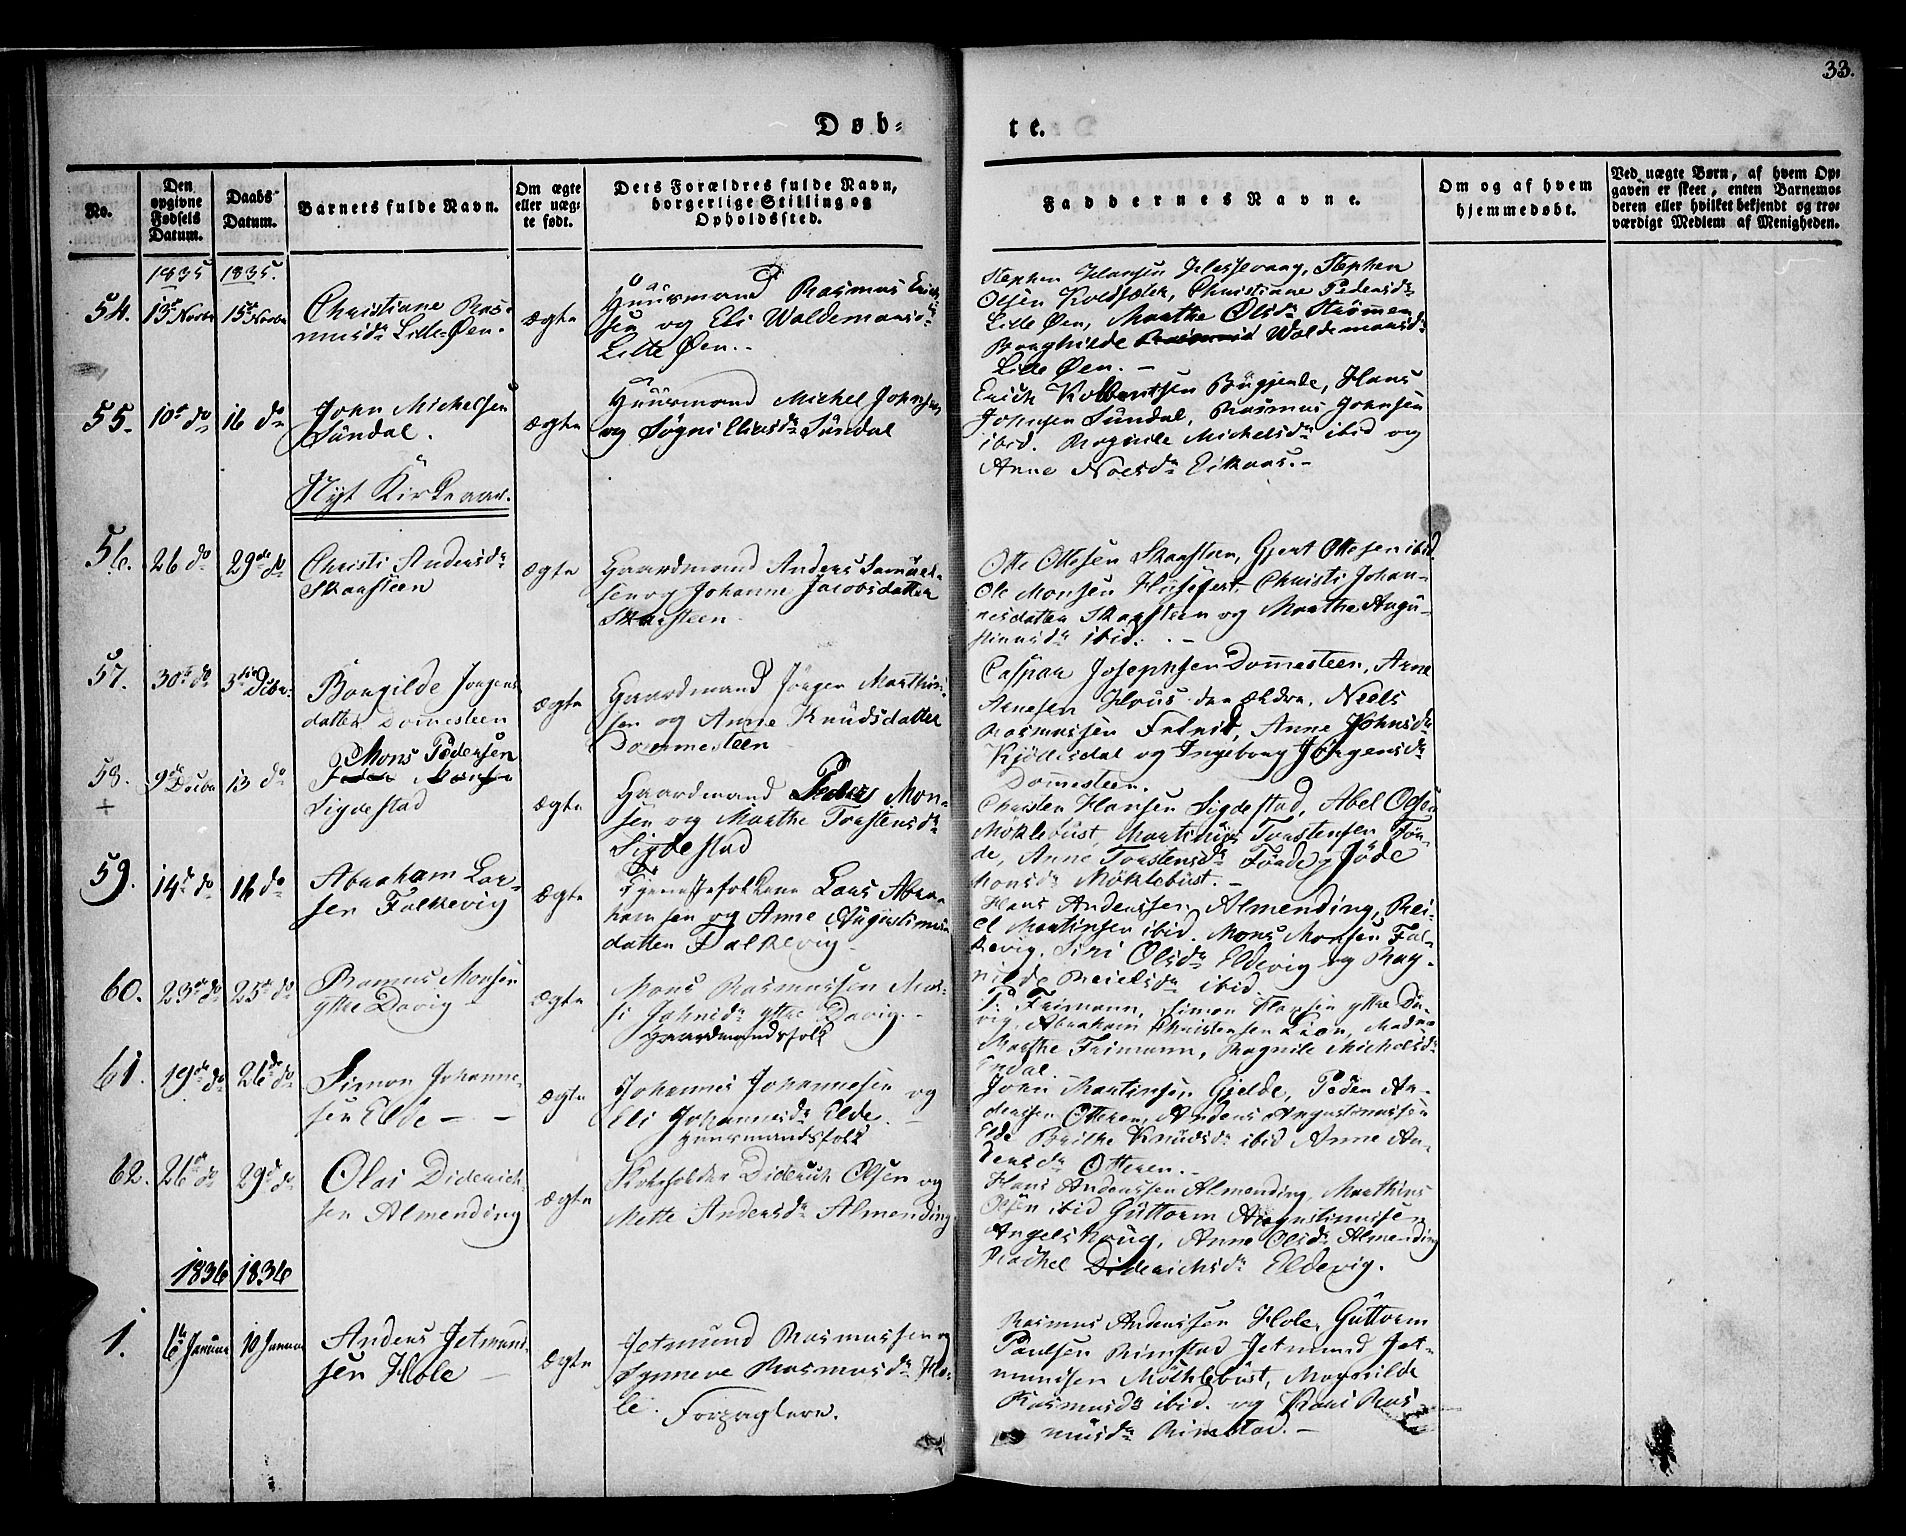 33.
Døb-
te.
No.
Den
opgivne
Fødsels
Datum.
Daabs
Datum.
Barnets fulde Navn.
Om ægte
eller uæg-
te født.
Dets Forældres fulde Navn,
borgerlige Stilling og
Opholdssted.
Faddernes Navne.
Om og af hvem
hjemmedøbt.
Ved uægte Børn, af hvem Op-
gaven er skeet, enten Barnemo-
deren eller hvilket bekjendt og tro-
værdigt Medlem af Menigheden.
1835 1835.
54. 13de Novbr 15de Novbr
Christiane Ras-
musdr Lille Øen.
ægte
Huusmand Rasmus Erich-
sen og Eli Waldemarsdr
Lille Øen.
Stephen Hansen Helsevaag, Stephen
Olsen Koldsæter, Christiane Pedersdr
Lille Øen, Marthe Olsdr Strømmen
Borghilde Waldemarsdr
Lille Øen. -
55. 10de do 16 do
John Michelsen
Sundal.
ægte
Huusmand Michel Johnsen
og Søgni Eliasdr Sundal
Erich Kolbentsen Bügjende, Hans
Johnsen Sundal, Rasmus Johnsen
ibid. Ragnile Michelsdr ibid og
Anne Noesdr Eikaas. -
Nyt Kirkeaar.
56. 26 do 29de do
Christi Andersdr
Skarsteen
ægte
Gaardmand Anders Samuel-
sen og Johanne Jacobsdatter
Skarsteen
Otte Ottesen Skarsteen, Gjert Ottesen ibid.
Ole Monsen Husefest, Christi Johan-
nesdatter Skarsteen og Marthe Augu-
stinusdr ibid. -
57. 30te do 3die Decbr.
Borgilde Jørgens
datter Dommesteen
ægte
Gaardmand Jørgen Marthin-
sen og Anne Knudsdatter
Dommesteen
Caspar Josephsen Domesteen, Arne
Arnesen Hous den ældre, Niels
Rasmussen Felnid, Anne Johnsdr
Kjödesdal og Ingeborg Jörgensdr
Domesteen.
58. 9de Decbr 13 do
+
Mons Pedersen
Peder Monsen
Sigdestad
ægte
Gaardmand Peder Mon-
sen og Marthe Torstensdr
Sigdestad
Christen Hansen Sigdestad, Abel Olsen
Möklebust, Marthinus Torstensen För-
de, Anne Torstensdr Förde og Jöde
Monsdr Möklebust. -
59. 14de do 16 do
Abraham Lar-
sen Falkevig
ægte
Tjenestefolkene Lars Abra-
hamsen og Anne Augustinus
datter Falkevig
Hans Anderssen Almending, Rei-
el Martinsen ibid. Mons Monsen Fal-
kevig. Siri Olsdr Eldevig og Rag-
nilde Reielsdr ibid.
60. 23de do 25de do
Rasmus Monsen
yttre Davig
ægte
Mons Rasmussen Mar-
ti Johnsdr yttre Davig.
Gaardmandsfolk
P. Frimann, Simon Hansen yttre Da-
vig, Abraham Christensen Lien, Madme
Marthe Frimann, Ragnile Michelsdr
Endal.
61. 19de do 26de do
Simon Johanne-
sen Elde -
ægte
Johannes Johannesen og
Eli Johannesdr Elde.
Huusmandsfolk
John Martinsen Gjelde, Peder An-
derssen Otteren, Anders Augustinussen
Elde Brithe Knudsdr ibid Anne An-
dersdr Otteren. -
62. 26de do 29de do
Olai Diderich-
sen Almending
ægte
Diderich Olsen og
Mette Andersdr Almending
Hans Anderssen Almending, Marthinus
Olsen ibid Guttorm Augustinussen
Angelskaug, Anne Olsdr Almending
Rachel Diderichsdr Eldevig.
1836 1836
1. 6te Januar 10 Januar
Anders Jetmund-
sen Hole -
ægte
Jetmund Rasmussen og
Synneve Rasmusdr Ho-
le. Forpagtere.
Rasmus Anderssen Hole, Guttorm
Paulsen Rimstad Jetmund Jet-
mundsen Möklebust, Magnilde
Rasmusdr ibid. og Kari Ras
musdr Rimstad. -